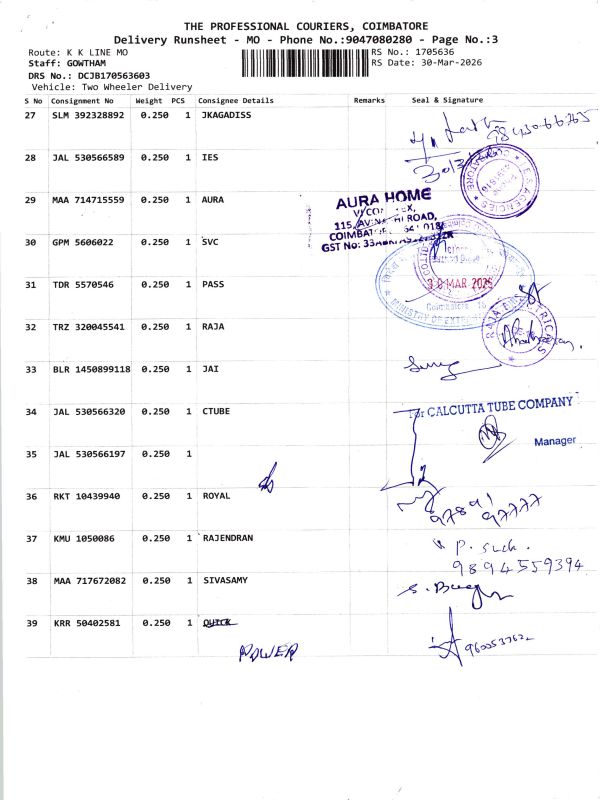 THE PROFESSIONAL COURIERS, COIMBATORE
Delivery Runsheet - MO - Phone No.:9047080280 - Page No.:3
Route: K K LINE MO
RS No.: 1705636
Staff: GOWTHAM
RS Date: 30-Mar-2026
DRS No.: DCJB170563603
Vehicle: Two Wheeler Delivery
S No Consignment No Weight PCS Consignee Details Remarks Seal & Signature
27 SLM 392328892 0.250 1 JKAGADISS
28 JAL 530566589 0.250 1 IES
29 MAA 714715559 0.250 1 AURA
AURA HOME
115, ROAD,
COIMBATORE
GST No:
30 GPM 5606022 0.250 1 SVC
31 TDR 5570546 0.250 1 PASS
30 MAR 2026
Coimbatore
MINISTRY OF
32 TRZ 320045541 0.250 1 RAJA
RAJA
33 BLR 1450899118 0.250 1 JAI
34 JAL 530566320 0.250 1 CTUBE
For CALCUTTA TUBE COMPANY
Manager
35 JAL 530566197 0.250 1
36 RKT 10439940 0.250 1 ROYAL
97891 97777
37 KMU 1050086 0.250 1 RAJENDRAN
9894559394
38 MAA 717672082 0.250 1 SIVASAMY
39 KRR 50402581 0.250 1 QUICK
POWER